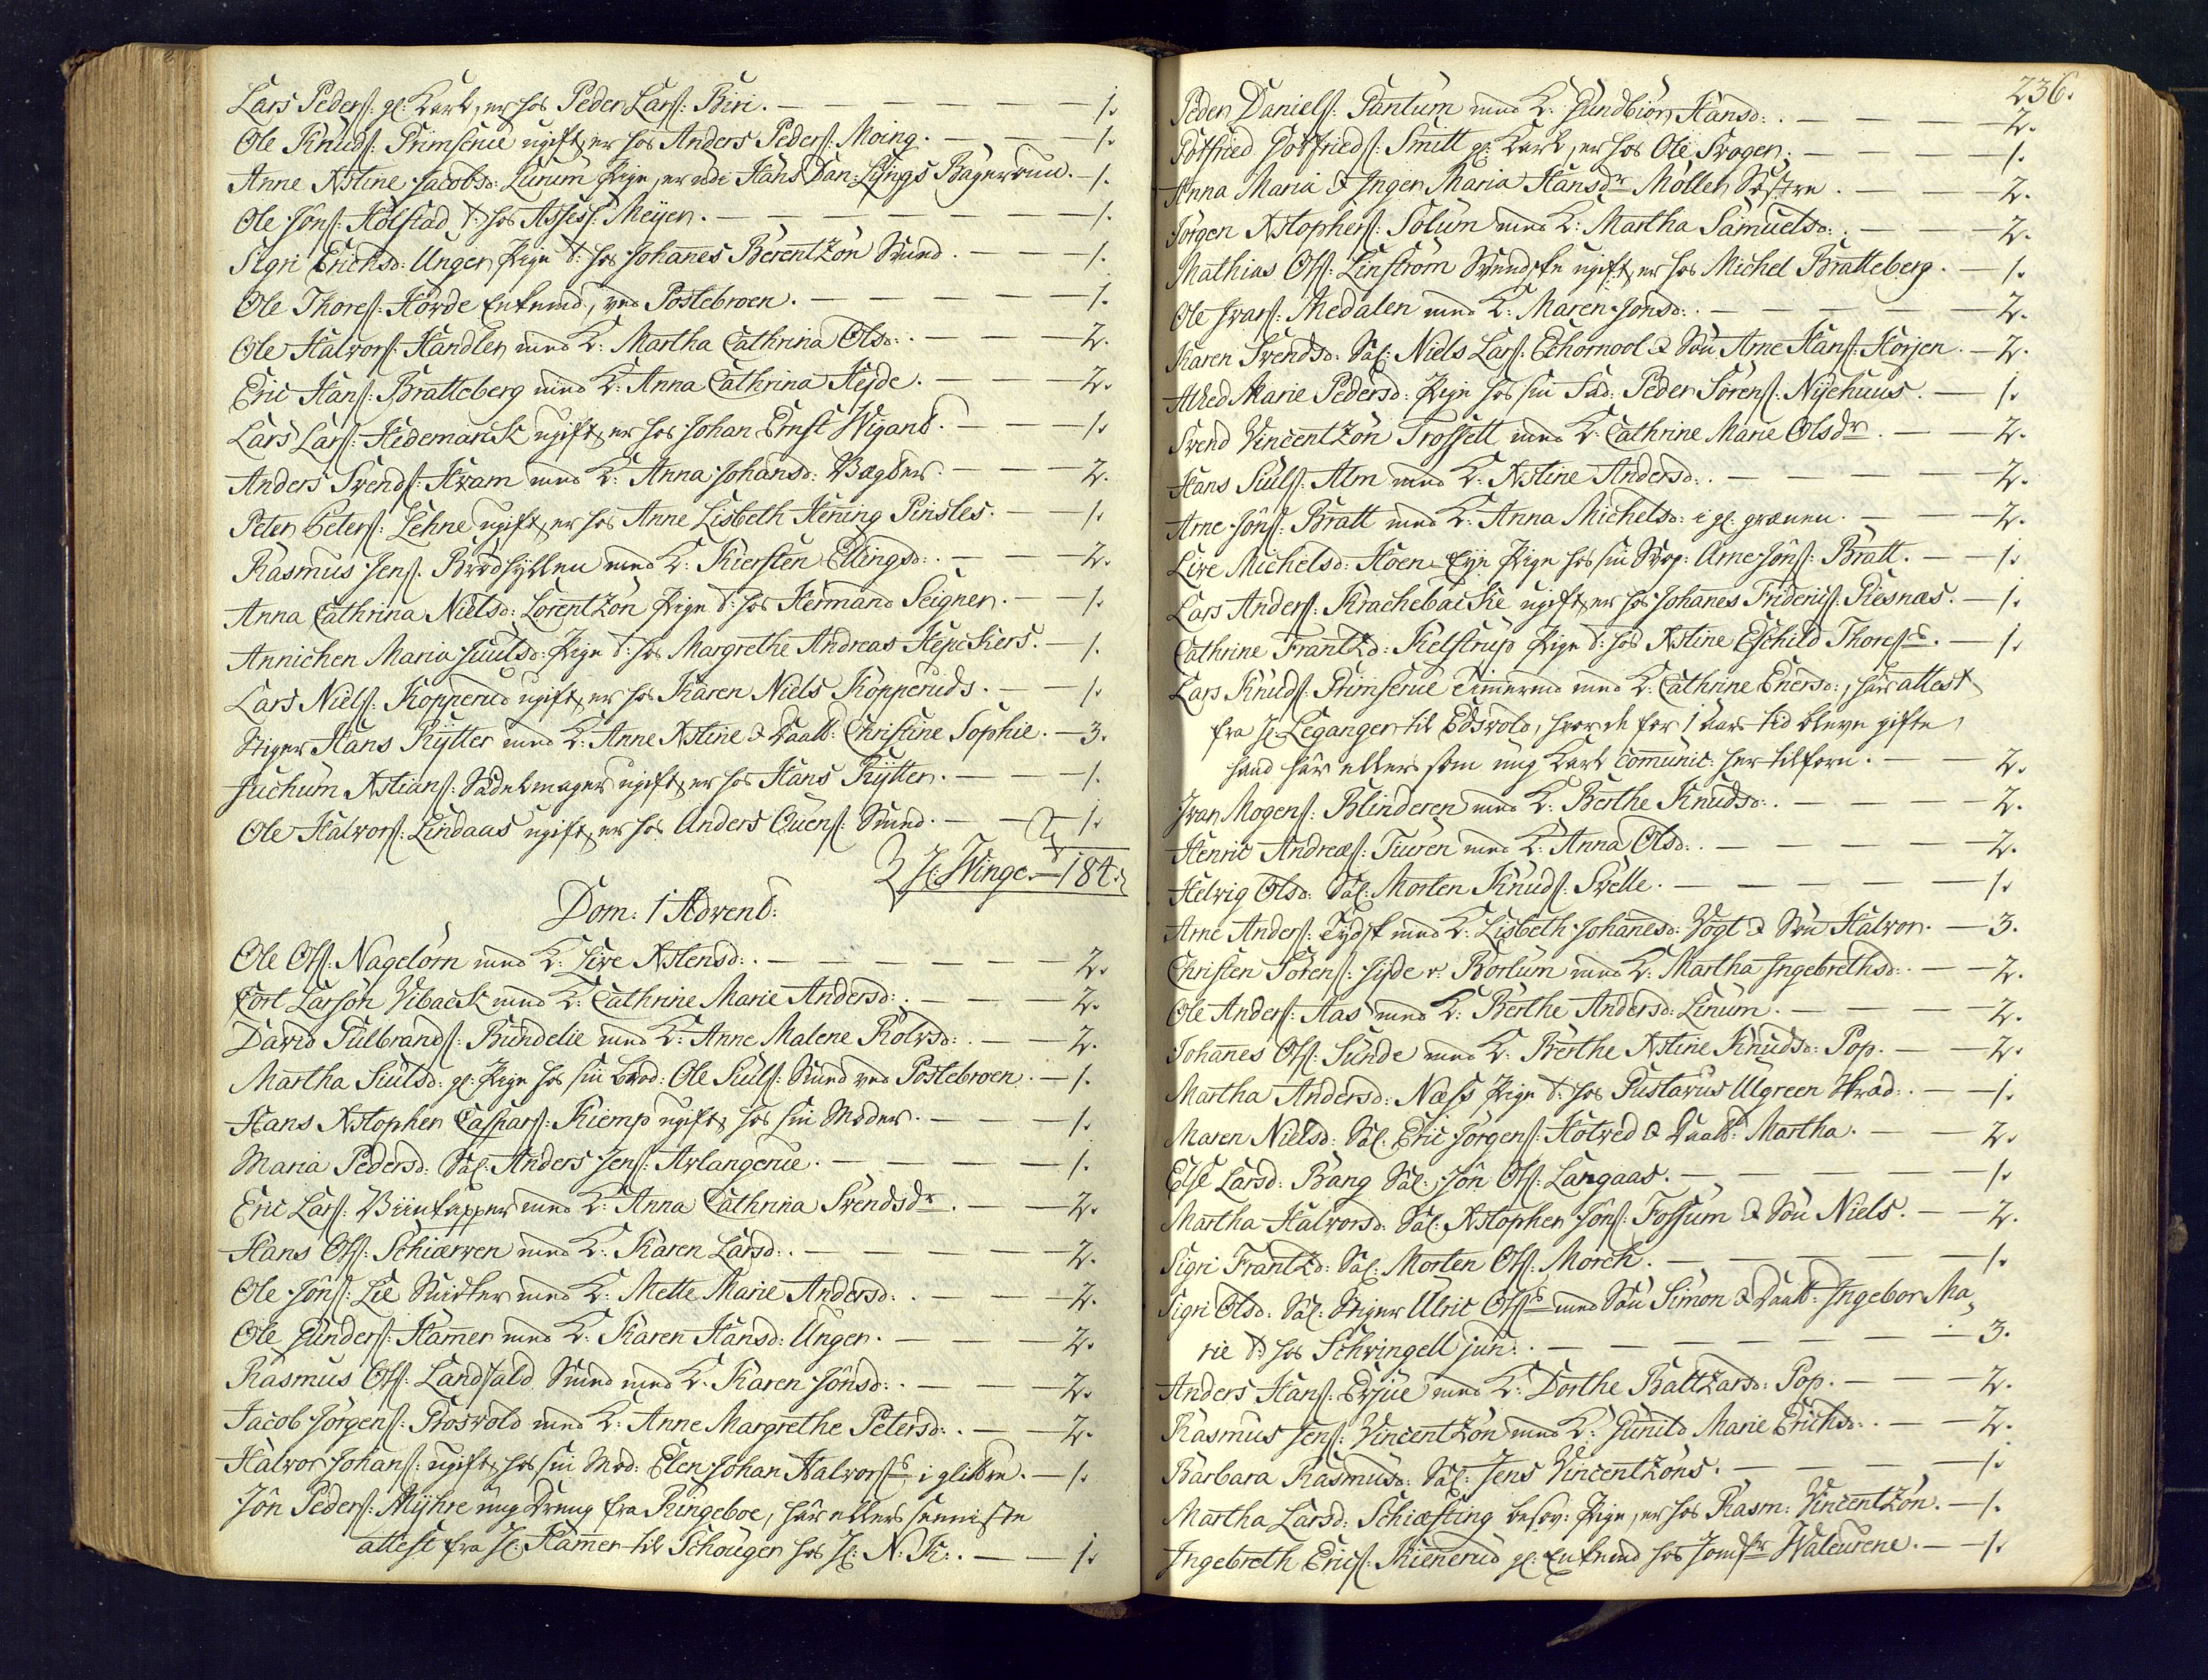 Lars Peders: gl: Karl, er hos Peder Lars: Biri. — 1.
Ole Knuds: Grimserue ugift, er hos Anders Peders: Moing. — 1.
Anne Xstine Jacobsd: Lurum Pige, er udi Hans Dan: Lyngs Bagerrum. — 1.
Ole Jöns: Holstad t: hos Assess: Meyer. — 1.
Sigri Erichsd: Unger Pige t: hos Johanes Berentzön Smed. — 1.
Ole Thores: Horde Enkemd, ved Postebroen. — 1.
Ole Halvors: Handler med K: Martha Cathrina Olsd: — 2.
Eric Hans: Bratteberg med K: Anna Cathrina Hejde. — 2.
Lars Lars: Hedemarck ugift, er hos Johan Ernst Wigand. — 1.
Anders Svends: Kram med K: Anna Johansd: Vægter. — 2.
Peter Peters: Lehne ugift, er hos Anne Lisbeth Hening Pinsles. — 1.
Rasmus Jens: Brödhylten med K: Kiersten Ellingsd: — 2.
Anna Cathrina Nielsd: Lorentzön Pige t: hos Hermand Seigner. — 1.
Annichen Maria Juulsd: Pige t: hos Margrethe Andreas Hejckers. — 1.
Lars Niels: Kopperud ugift, er hos Karen Niels Kopperuds. — 1.
Stiger Hans Rytter med K: Anne Xstine & Daatt: Christine Sophie. — 3.
Juchum Xstians: Sadelmager ugift, er hos Hans Rytter. — 1.
Ole Halvors: Lindaas ugift, er hos Anders Quens: Smed. — 1.
H: Winge. — 184.
Dom: 1 Advent:
Ole Ols: Nagelörn med K: Live Xstensd: — 2.
Cort Larsön Vibaeck med K: Cathrine Marie Andersd: — 2.
David Gulbrands: Bundelie med K: Anne Malene Rolvsd: — 2.
Martha Siulsd: gl: Pige hos sin Brod: Ole Siuls: Smed ved Postebroen. — 1.
Hans Xstopher Caspars: Kiemp ugift, hos sin Moder. — 1.
Maria Pedersd: Sal: Anders Jens: Arlangerue. — 1.
Eric Lars: Viintapper med K: Anna Cathrina Svendsdr. — 2.
Hans Ols: Schiærven med K: Karen Larsd: — 2.
Ole Jöns: Lie Snidker med K: Mette Marie Andersd: — 2.
Ole Gunders: Hamer med K: Karen Hansd: Unger. — 2.
Rasmus Ols: Landfald Smed med K: Karen Jönsd: — 2.
Jacob Jörgens: Grosvold med K: Anne Margrethe Petersd: — 2.
Halvor Johans: ugift, hos sin Mod: Elen Johan Halvors: i glittre. — 1.
Jön Peders: Myhre ung Dreng fra Ringeboe, har ellers seeniste
attest fra H: Hamer til Schouger hos H: N: K: — 1.
236.
Peder Daniels: Gantum med K: Gundbiör Hansd: — 2.
Gotfried Gotfrieds: Smitt gl: Karl, er hos Ole Skogen. — 1.
Anna Maria & Inger Maria Hansdr Möller Söstre. — 2.
Jörgen Xstophers: Solum med K: Martha Samuelsd: — 2.
Mathias Ols: Linström Svendske ugift, er hos Michel Bratteberg. — 1.
Ole Ivars: Medalen med K: Maren Jonsd: — 2.
Karen Svendsd: Sal: Niels Lars: Echornool & Sön Arne Hans: Korjen. — 2.
Alhed Marie Pedersd: Pige hos sin Fad: Peder Sörens: Nyehuus. — 1.
Svend Vincentzön Trossett med K: Cathrine Marie Olsdr. — 2.
Hans Siuls: Alm med K: Xstine Andersd: — 2.
Arne Jöns: Bratt med K: Anna Michelsd: i gl: gruven. — 2.
Live Michelsd: Hoen-Eye Pige hos sin Svog: Arne Jöns: Bratt. — 1.
Lars Anders: Krachebäcke ugift, er hos Johanes Friderics: Riesnæs. — 1.
Cathrine Frantzd: Kielstrup Pige t: hos Xstine Eschild Thores: — 1.
Lars Knuds: Grimserue Timermd med K: Cathrine Enersd:, har attest
fra H: Leganger til Edsvold, hvor de for 1 Aars tid bleve gifte,
hand har ellers som ung Karl comunic: her tilforn. — 2.
Ivar Mogens: Blinderen med K: Berthe Knudsd: — 2.
Henric Andreæs: Turen med K: Anna Olsd: — 2.
Helvig Olsd: Sal: Morten Knuds: Svelle. — 1.
Arne Anders: Tydsk med K: Lisbeth Johanesd: Vogt & Sön Halvor. — 3.
Christen Sörens: Jyde v: Bortum med K: Martha Ingebrethsd: — 2.
Ole Anders: Aas med K: Berthe Andersd: Linum. — 2.
Johanes Ols: Sunde med K: Berthe Xstine Knudsd: Pop. — 2.
Martha Andersd: Næss Pige t: hos Gustavus Ulgreen Strad: — 1.
Maren Nielsd: Sal: Eric Jörgens: Hotved & Daatt: Martha. — 2.
Else Larsd: Bang Sal: Jön Ols: Langaas. — 1.
Martha Halvorsd: Sal: Xstopher Jöns: Fossum & Sön Niels. — 2.
Sigri Frantzd: Sal: Morten Ols: Morch. — 1.
Sigri Olsd: Sal: Stiger Ulric Ols: med Sön Simon & Daatt: Ingebor Ma-
rie t: hos Schvingell jun: — 3.
Anders Hans: Evjue med K: Dorthe Baltzarsd: Pop: — 2.
Rasmus Jens: Vincentzön med K: Gunild Marie Erichsd: — 2.
Barbara Rasmusd: Sal: Jens Vincentzöns. — 1.
Martha Larsd: Schiæsting besov: Pige, er hos Rasm: Vincentzön. — 1.
Ingebreth Erics: Kienerud gl: Enkemd hos Jomfr Waleurene. — 1.